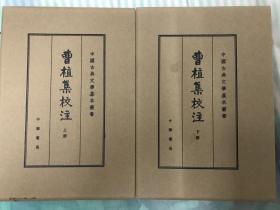 中國古典文學基本叢書
曹植集校注
上册
中華書局
中國古典文學基本叢書
曹植集校注
下册
中華書局